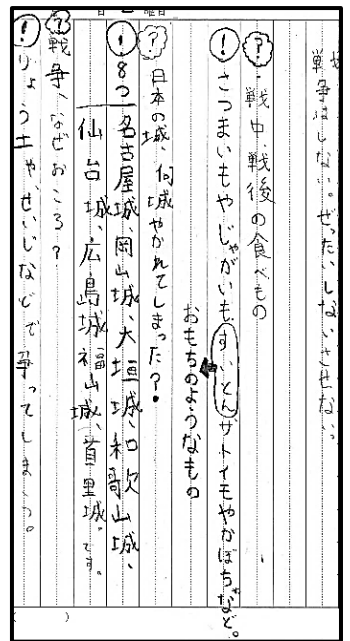 戦争はしない。ぜったいしないさせない
? 戦中、戦後の食べもの
! さつまいもやじゃがいも、すいとん、サトイモやかぼちゃなど。
おもちのようなもの
? 日本の城、何城やかれてしまった?
! 8つ 名古屋城、岡山城、大垣城、和歌山城、
仙台城、広島城、福山城、首里城。です。
? 戦争、なぜおころ?
! りょう土や、せいじなどで争ってしまう。